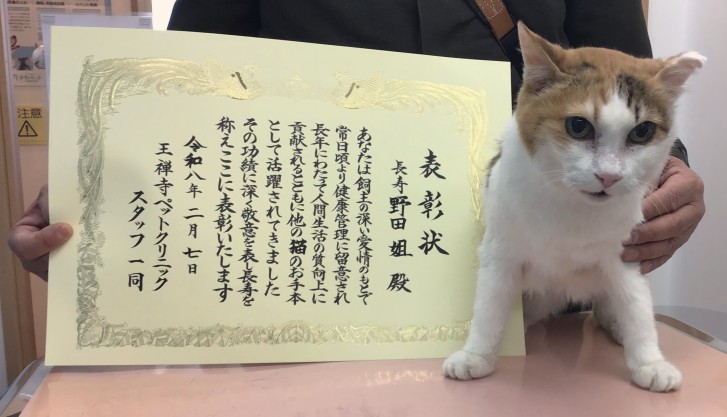 表彰状
長寿 野田 姐 殿
あなたは飼主の深い愛情のもとで
常日頃より健康管理に留意され
長年にわたって人間生活の質向上に
貢献されるとともに他の猫のお手本
として活躍されてきました
その功績に深く敬意を表し長寿を
称えここに表彰いたします
令和八年二月七日
王禅寺ペットクリニック
スタッフ一同
注意